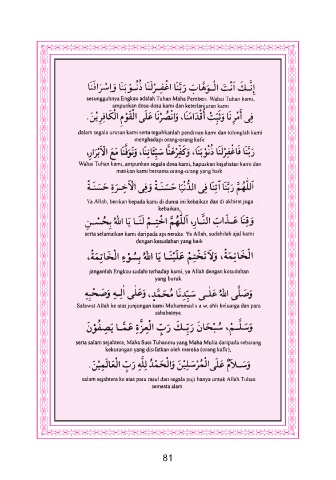 إِنَّكَ أَنْتَ الْوَهَّابُ رَبَّنَا اغْفِرْلَنَا ذُنُوْبَنَا وَإِسْرَافَنَا
sesungguhnya Engkau adalah Tuhan Maha Pemberi. Wahai Tuhan kami,
ampunkan dosa-dosa kami dan keterlanjuran kami
فِى أَمْرِنَا وَثَبِّتْ أَقْدَامَنَا، وَانْصُرْنَا عَلَى الْقَوْمِ الْكَافِرِيْنَ.
dalam segala urusan kami serta teguhkanlah pendirian kami dan tolonglah kami
menghadapi orang-orang kafir
رَبَّنَا فَاغْفِرْلَنَا ذُنُوْبَنَا، وَكَفِّرْعَنَّا سَيِّئَاتِنَا، وَتَوَفَّنَا مَعَ الْأَبْرَارِ،
Wahai Tuhan kami, ampunkan segala dosa kami, hapuskan kejahatan kami dan
matikan kami bersama orang-orang yang baik
اَللَّهُمَّ رَبَّنَا آتِنَا فِى الدُّنْيَا حَسَنَةً وَفِى الْآخِرَةِ حَسَنَةً
Ya Allah, berikan kepada kami di dunia ini kebaikan dan di akhirat juga
kebaikan,
وَقِنَا عَذَابَ النَّارِ، اَللَّهُمَّ اخْتِمْ لَنَا يَا اللهُ بِحُسْنِ
serta selamatkan kami daripada api neraka. Ya Allah, sudahilah ajal kami
dengan kesudahan yang baik
الْخَاتِمَةْ، وَلاَ تَخْتِمْ عَلَيْنَا يَا اللهُ بِسُوْءِ الْخَاتِمَةْ،
janganlah Engkau sudahi terhadap kami, ya Allah dengan kesudahan
yang buruk
وَصَلَّى اللهُ عَلَى سَيِّدِنَا مُحَمَّدٍ، وَعَلَى آلِهِ وَصَحْبِهِ
Salawat Allah ke atas junjungan kami Muhammad s.a.w, ahli keluarga dan para
sahabatnya
وَسَلَّمْ، سُبْحَانَ رَبِّكَ رَبِّ الْعِزَّةِ عَمَّا يَصِفُوْنَ
serta salam sejahtera, Maha Suci Tuhanmu yang Maha Mulia daripada sebarang
kekurangan yang disifatkan oleh mereka (orang kafir),
وَسَلاَمٌ عَلَى الْمُرْسَلِيْنَ وَالْحَمْدُ لِلَّهِ رَبِّ الْعَالَمِيْنَ.
salam sejahtera ke atas para rasul dan segala puji hanya untuk Allah Tuhan
semesta alam
81